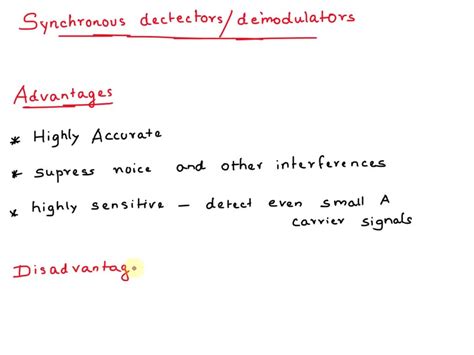 Synchronous dectectors/demodulators
Advantages
* Highly Accurate
* supress noice and other interferences
* highly sensitive – detect even small A
carrier signals
Disadvantag